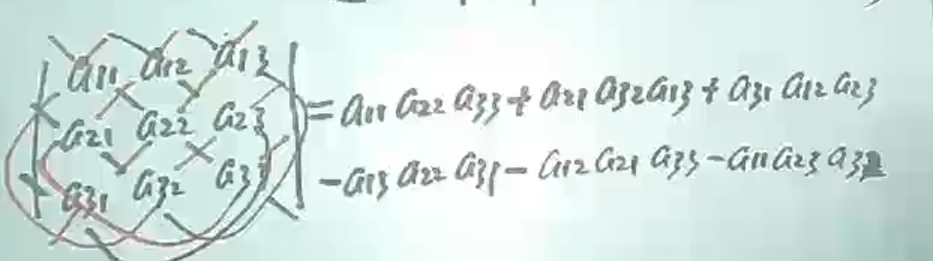 a11 a12 a13
a21 a22 a23 = a11 a22 a33 + a21 a32 a13 + a31 a12 a23
a31 a32 a33 - a13 a22 a31 - a12 a21 a33 - a11 a23 a32